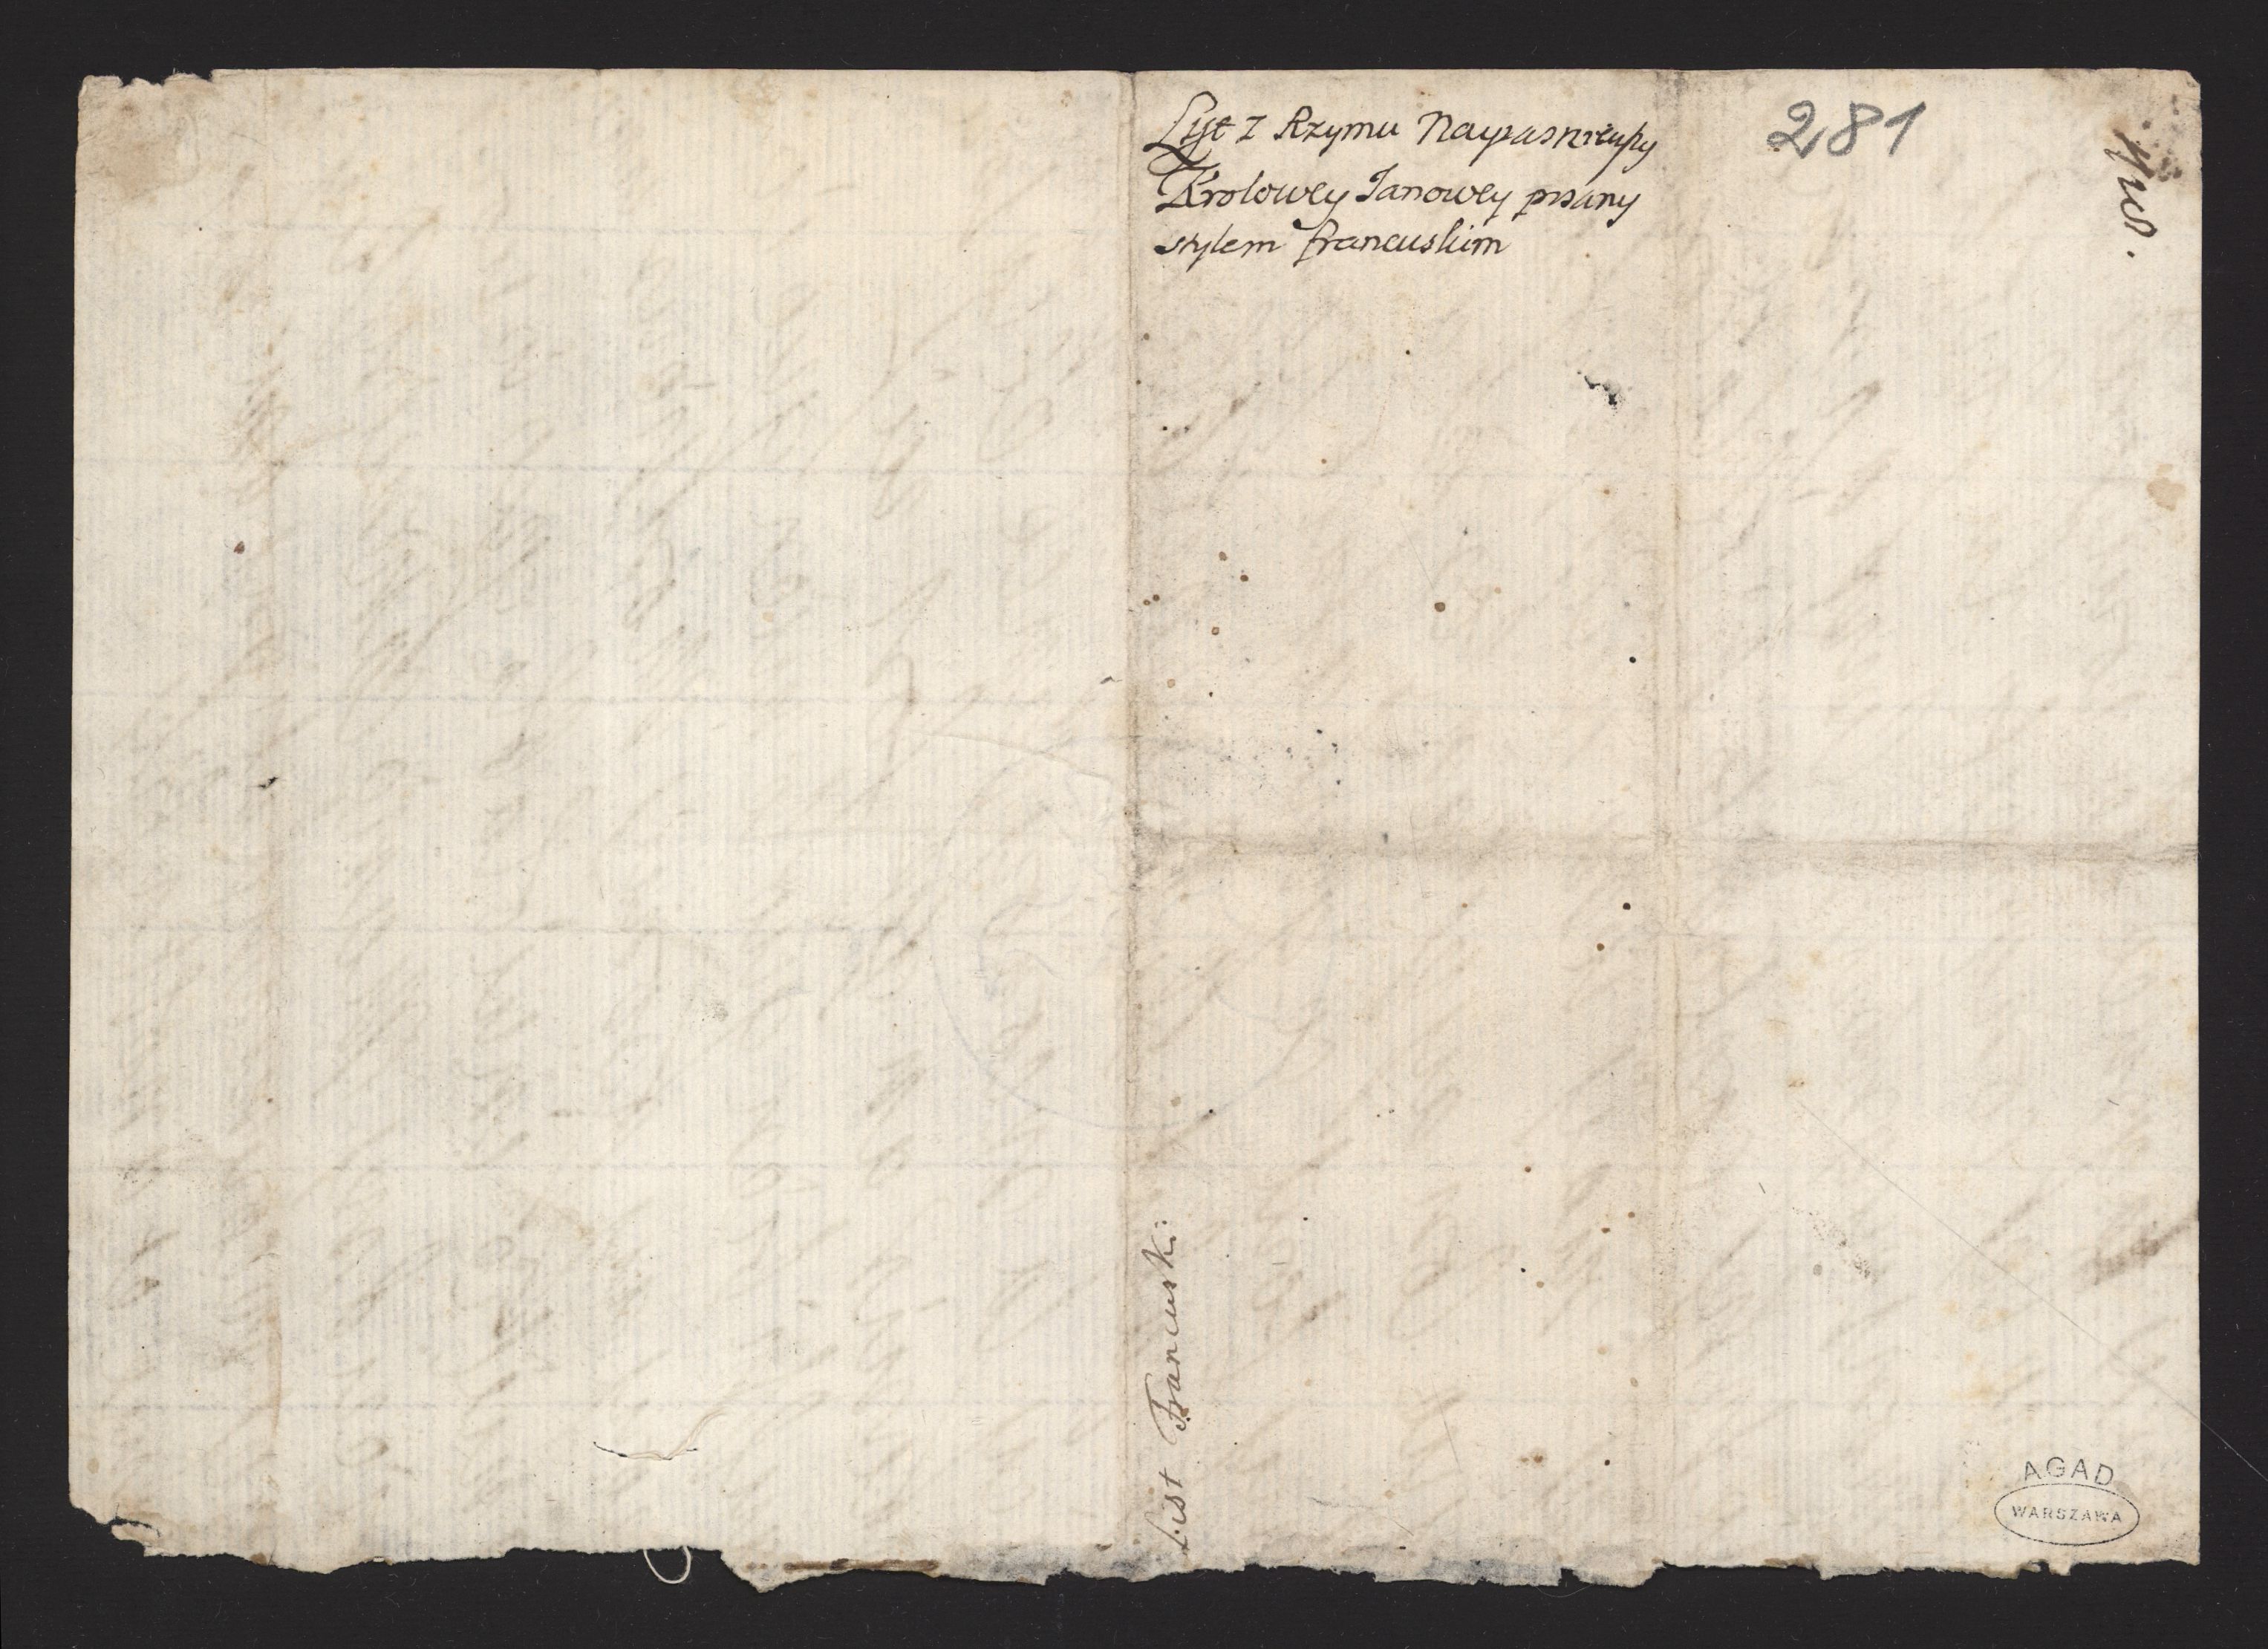 List z Rzymu Nayiasnieyszy
Krolowey Janowey pisany
stylem francuskim
281
List Francuski:
AGAD
WARSZAWA